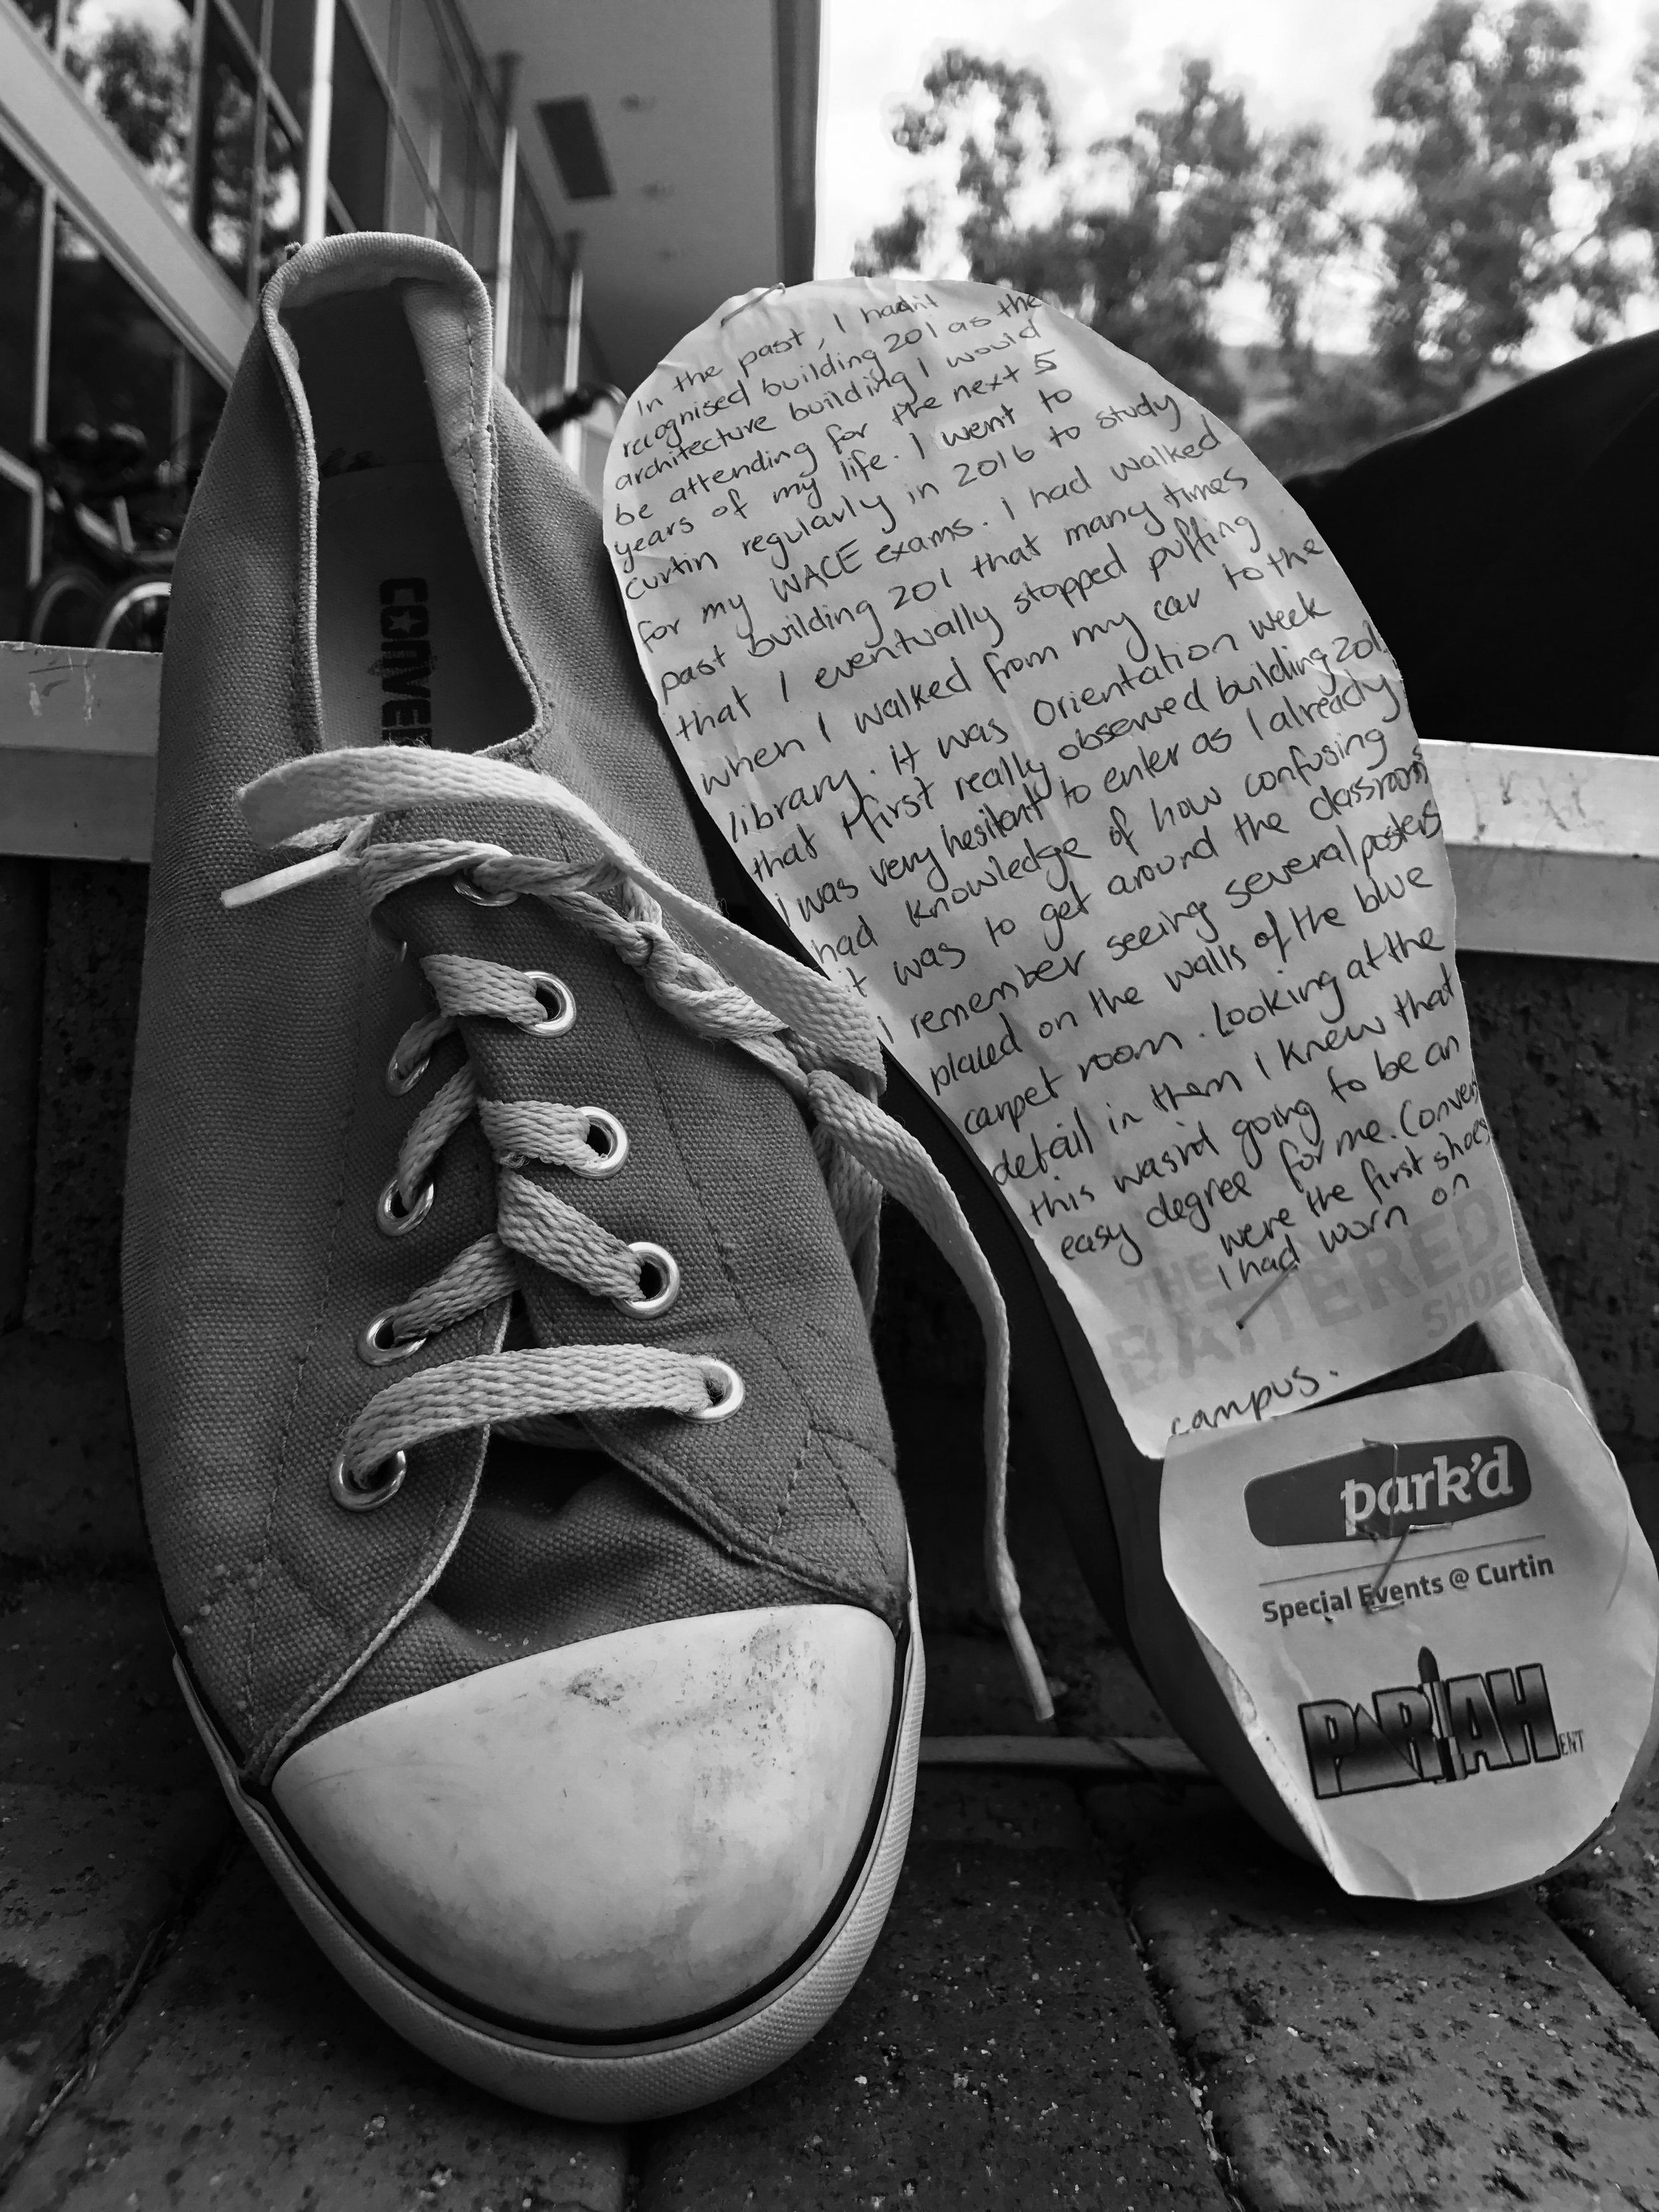 CONVER
In the past, I hadn't
recognised building 201 as the
architecture building I would
be attending for the next 5
years of my life. I went to
curtin regularly in 2016 to study
for my WACE exams. I had walked
past building 201 that many times
that I eventually stopped puffing
when I walked from my car to the
library. It was Orientation week
that I first really observed building 201
I was very hesitent to enter as I already
had knowledge of how confusing
it was to get around the classrooms
I remember seeing several posters
placed on the walls of the blue
carpet room. Looking at the
detail in them I knew that
this wasn't going to be an
easy degree for me. Convers
were the first shoes
I had worn on
THE
BATTERED
SHOE
campus.
park'd
Special Events @ Curtin
PARIAH
ENT